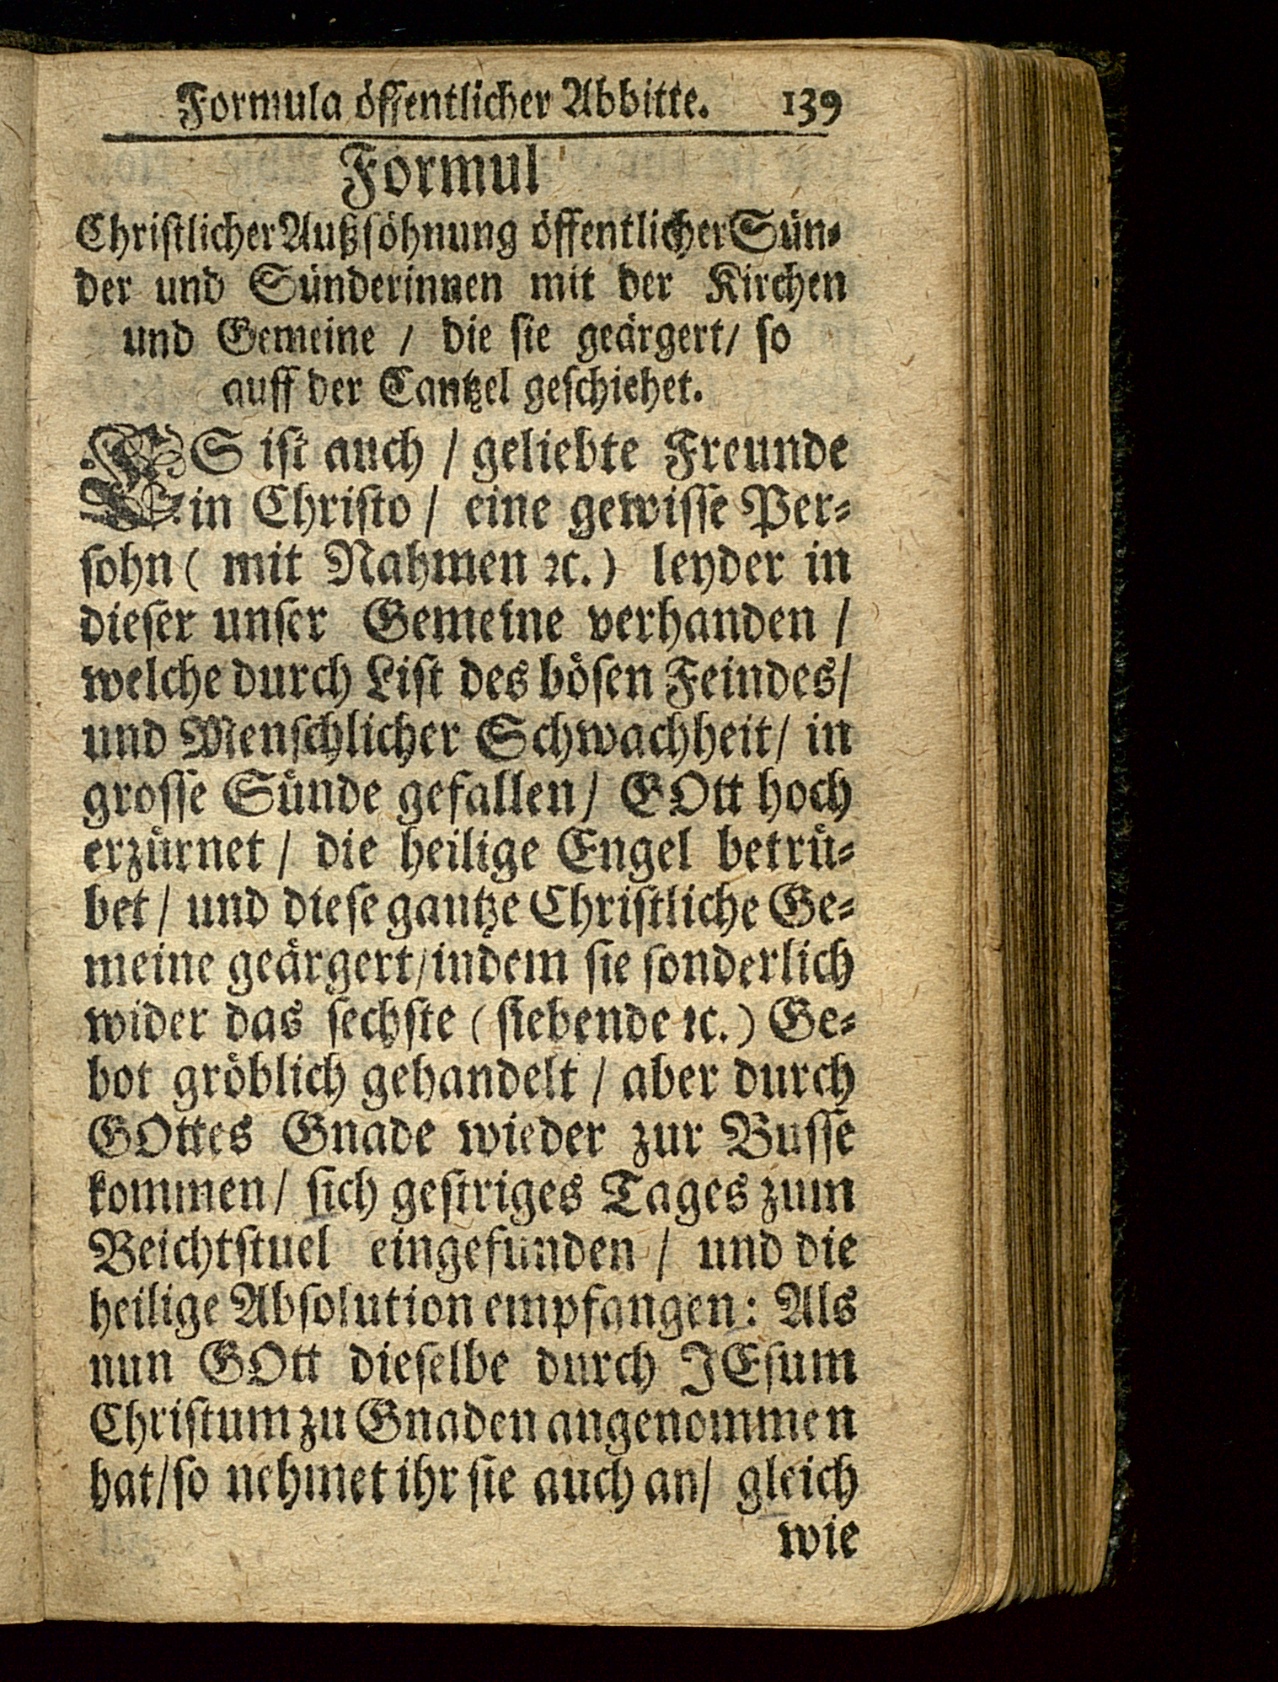 Formula öffentlicher Abbitte. 139
Formul
Christlicher Außsöhnung öffentlicher Sün-
der und Sünderinnen mit der Kirchen
und Gemeine / die sie geärgert/ so
auff der Cantzel geschiehet.
ES ist auch / geliebte Freunde
in Christo / eine gewisse Per-
sohn ( mit Nahmen ꝛc.) leyder in
dieser unser Gemeine verhanden /
welche durch List des bösen Feindes/
und Menschlicher Schwachheit/ in
grosse Sünde gefallen/ GOtt hoch
erzürnet / die heilige Engel betrü-
bet / und diese gantze Christliche Ge-
meine geärgert/indem sie sonderlich
wider das sechste ( siebende ꝛc.) Ge-
bot gröblich gehandelt / aber durch
GOttes Gnade wieder zur Busse
kommen/ sich gestriges Tages zum
Beichtstuel eingefunden / und die
heilige Absolution empfangen: Als
nun GOtt dieselbe durch JEsum
Christum zu Gnaden angenommen
hat/so nehmet ihr sie auch an/ gleich
wie